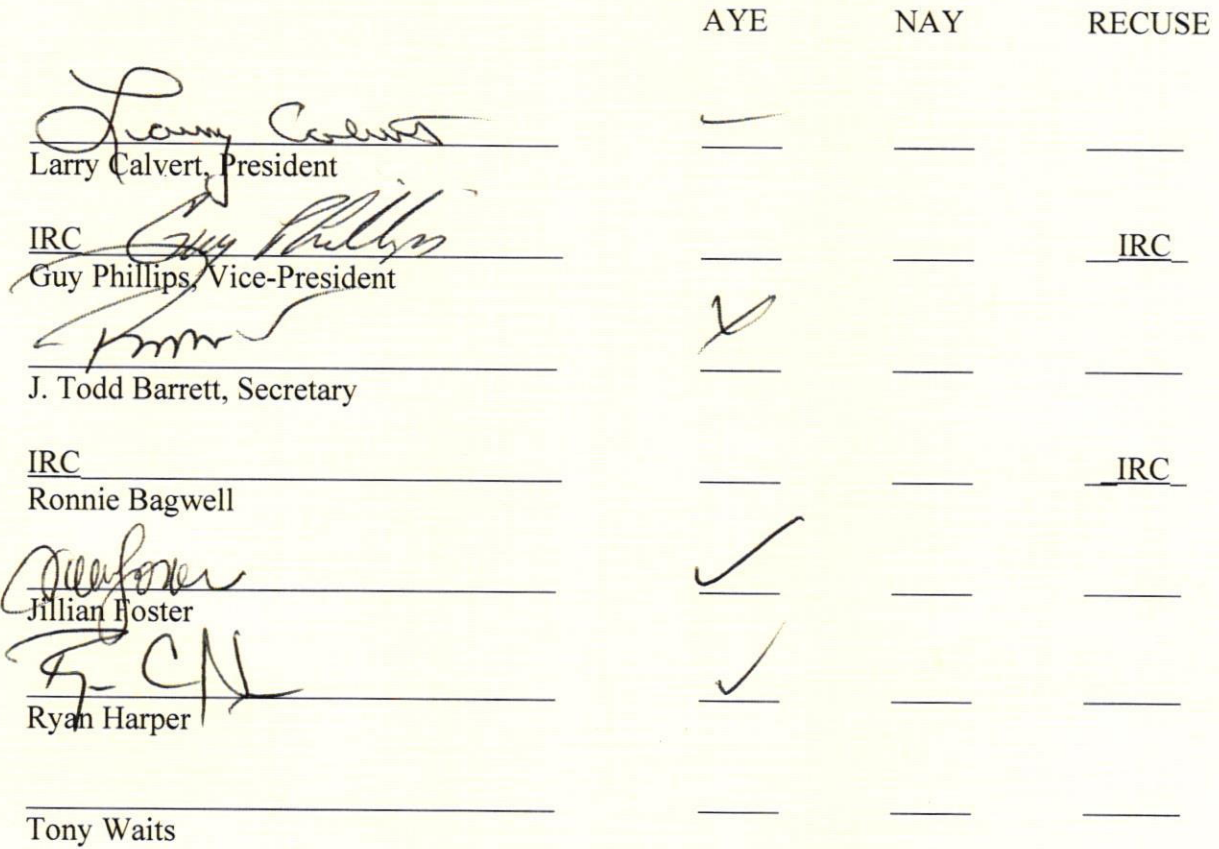 AYE NAY RECUSE
Larry Calvert
Larry Calvert, President
IRC Guy Phillips IRC
Guy Phillips, Vice-President
J. Todd Barrett, Secretary
IRC IRC
Ronnie Bagwell
Jillian Foster
Jillian Foster
Ryan Harper
Tony Waits